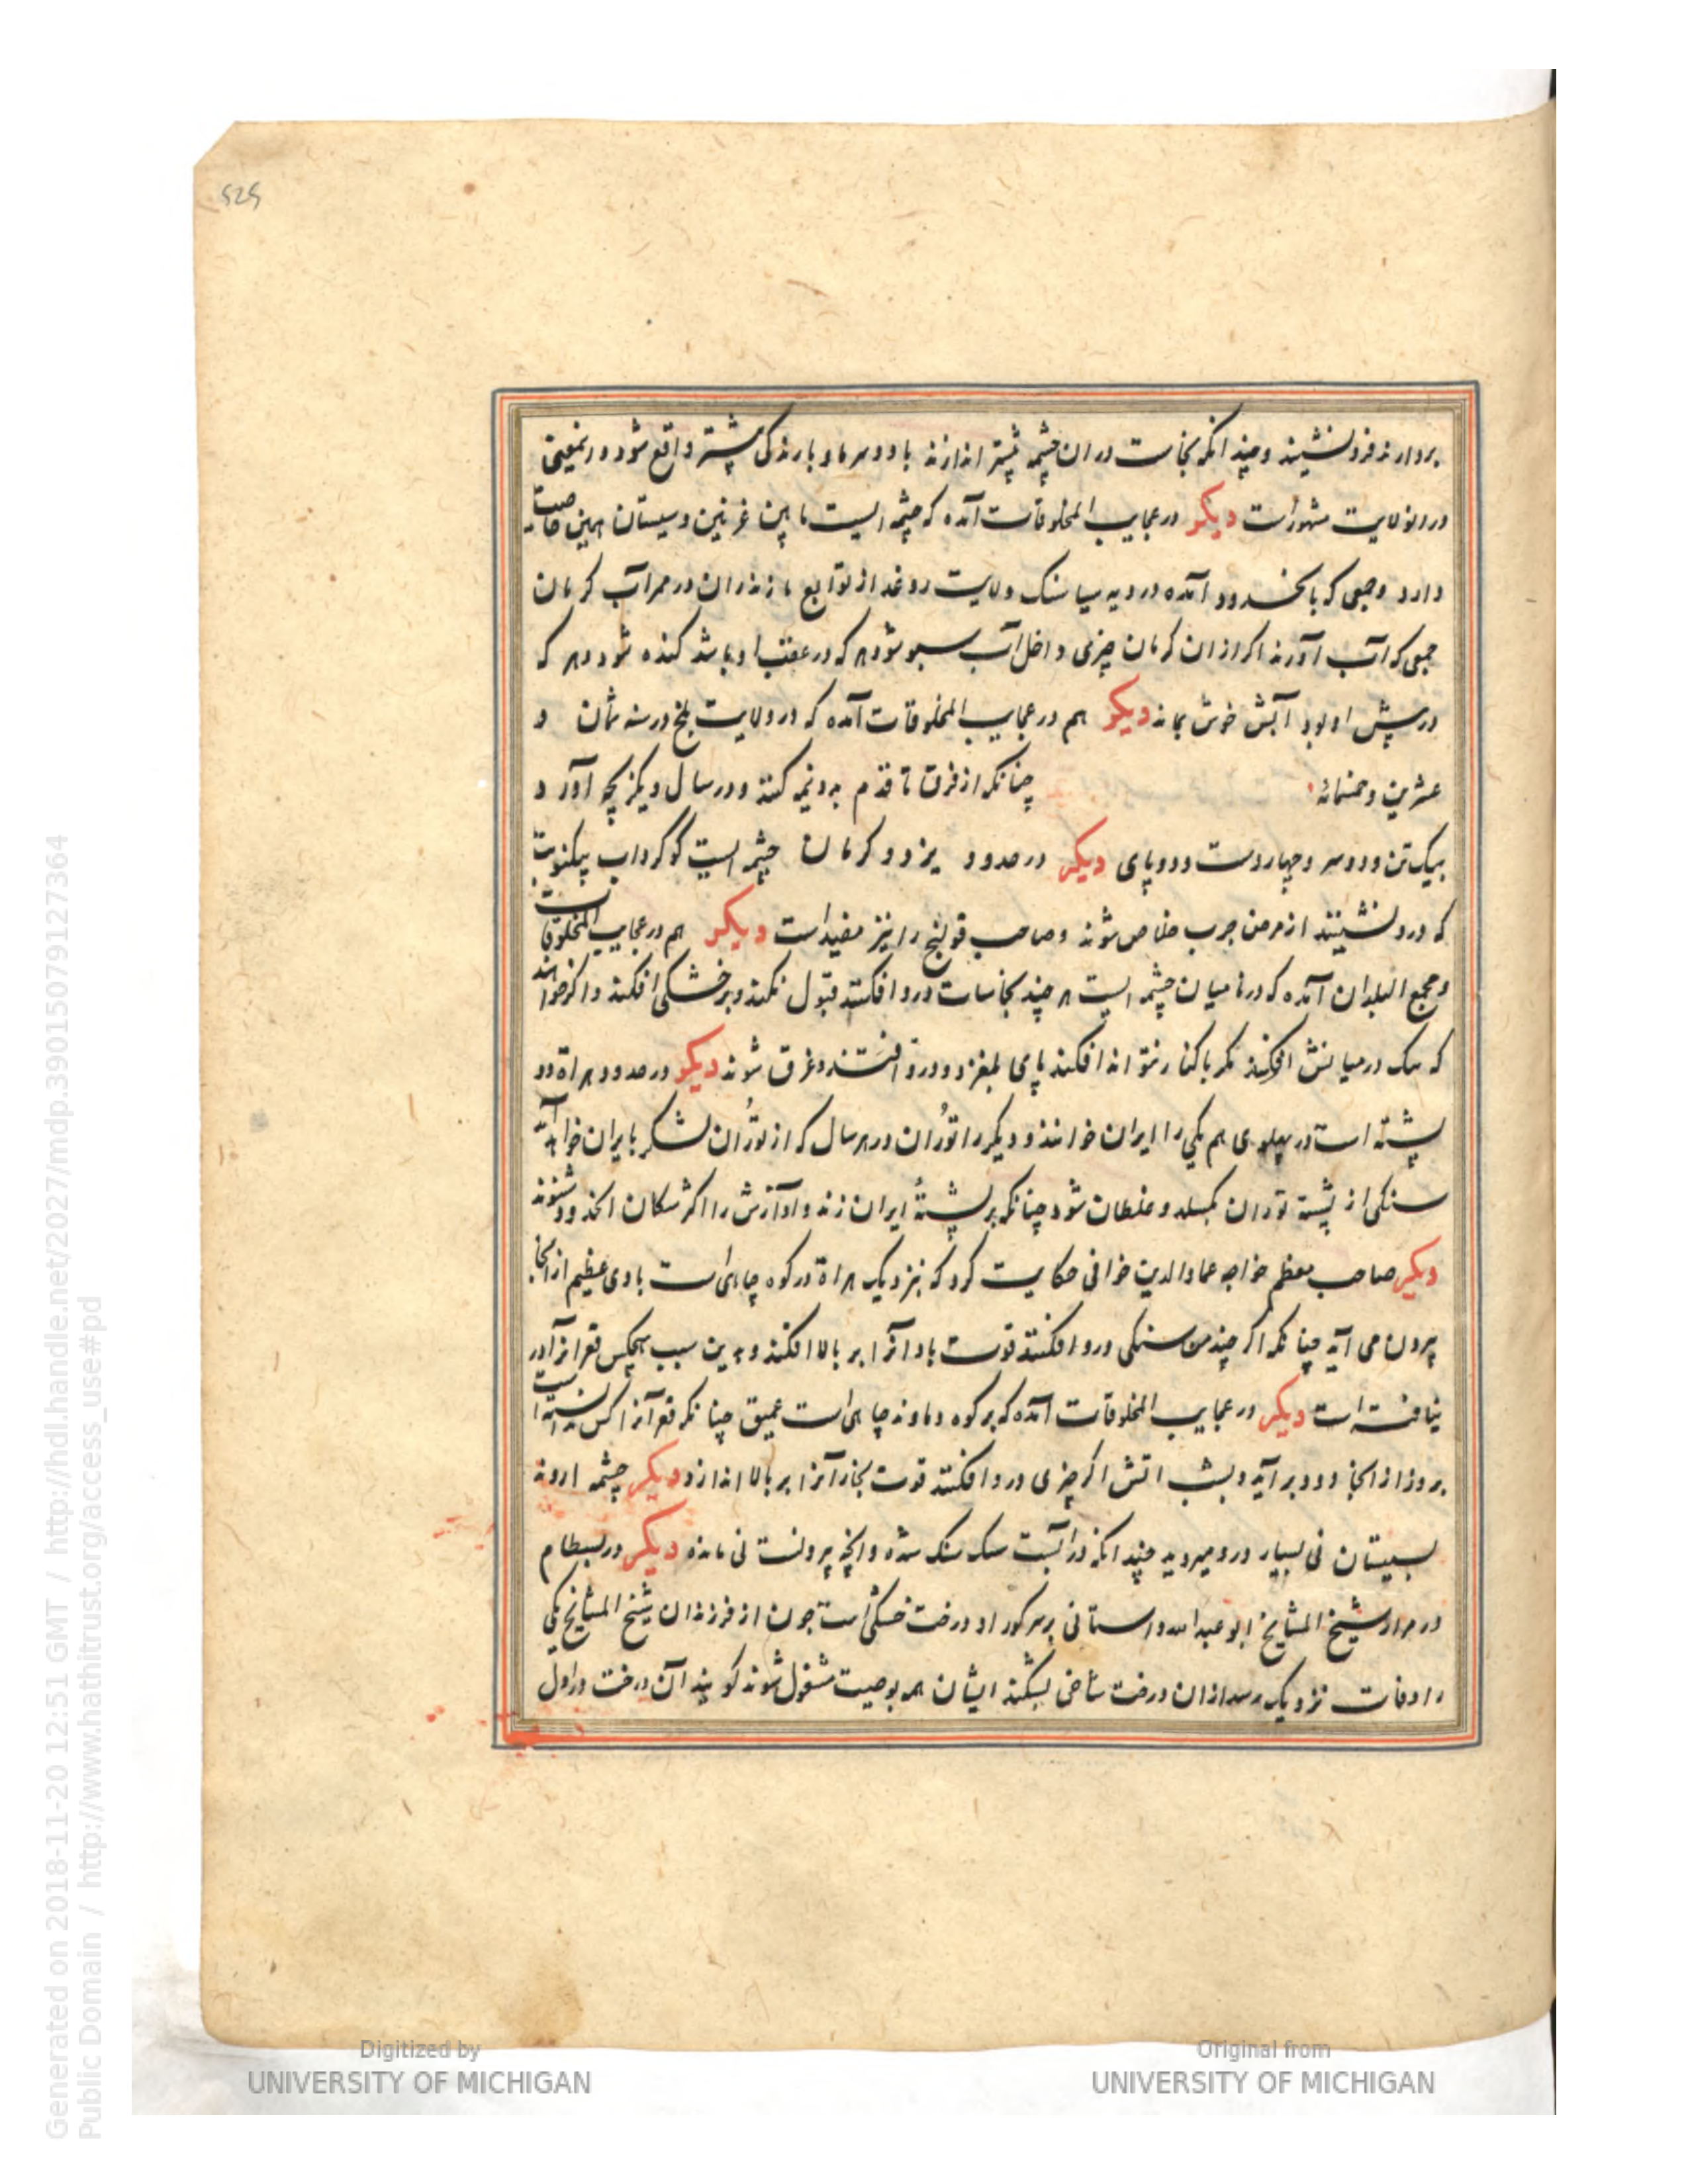 525
بردارند فرو نشیند و چندانکه نجاست در ان چشمه بیشتر اندازند باد و سرما و بارندکی بیشتر واقع شود و رنمعنی
در ولایت مشهورست دیکر در عجایب المخلوقات آمده که چشمه ایست مابین غزنین و سیستان همین خاصیت
دارد و جمعی که آمده در دیه سیاسنک ولایت روغد از توابع مازندران در ممر آب کرمان
جمعی که آب آورند اکر از ان کرمان چیزی داخل آب سبو شود هر که در عقب او باشد کنده شود و هر که
در پیش او بود آبش خوش بماند دیکر هم در عجایب المخلوقات آمده که در ولایت بلخ در سنه ثمان و
عشرین و خمسمائه چنانکه از فرق تا قدم بدو نیمه کنند و در سال دیکر بچه آورد
بیک تن و دو سر و چهار دست و دو پای دیکر در حدود یزد و کرمان چشمه ایست کوکرداب
که درو نشینند از مرض جرب خلاص شوند و صاحب قولنج را نیز مفید است دیکر هم در عجایب المخلوقات
و مجمع البلدان آمده که در بامیان چشمه ایست هر چند نجاسات درو افکنند قبول نکند و بر خشکی افکند و اکر خواهند
که سک در میانش افکنند مکر با کنار نتواند افکند پای بلغزد و درو افتند و غرق شوند دیکر در حدود هراة دو
پشته است در پهلوی هم یکی را ایران خوانند و دیکر را توران در هر سال که از توران لشکر بایران خواهد آمد
سنکی از پشته توران بکسلد و غلطان شود چنانکه بر پشتهٔ ایران زند و آوازش را اکثر سکان انحدود شنوند
دیکر صاحب معظم خواجه عماد الدین خوافی حکایت کرد که بنزدیک هراة در کوه چاهی است بادی عظیم از انجا
بیرون می آید چنانکه اکر چند من سنکی درو افکنند قوت باد انرا بر بالا افکند و بدین سبب هیچکس قعر انرا در
نیافته است دیکر در عجایب المخلوقات آمده که بر کوه دماوند چاهی است عمیق چنانکه قعر آنرا کس ندانسته است
بروز از انجا دود بر آید و بشب اتش اکر چیزی درو افکنند قوت بخار آنرا بر بالا اندازد دیکر چشمه اروند
بسیستان نی بسیار درو میروید چندانکه در آبست سک سنک شده و انچه بیرونست نی مانده دیکر در بسطام
در مزار شیخ المشایخ ابو عبدالله داستانی بر سر کور او درخت خشکی است چون از فرزندان شیخ المشایخ یکی
را وفات نزدیک رسد از ان درخت شاخی بشکند ایشان همه بوصیت مشغول شوند کویند آن درخت در اول
Digitized by
UNIVERSITY OF MICHIGAN
Original from
UNIVERSITY OF MICHIGAN
Generated on 2018-11-20 12:51 GMT / http://hdl.handle.net/2027/mdp.39015079127364
Public Domain / http://www.hathitrust.org/access_use#pd